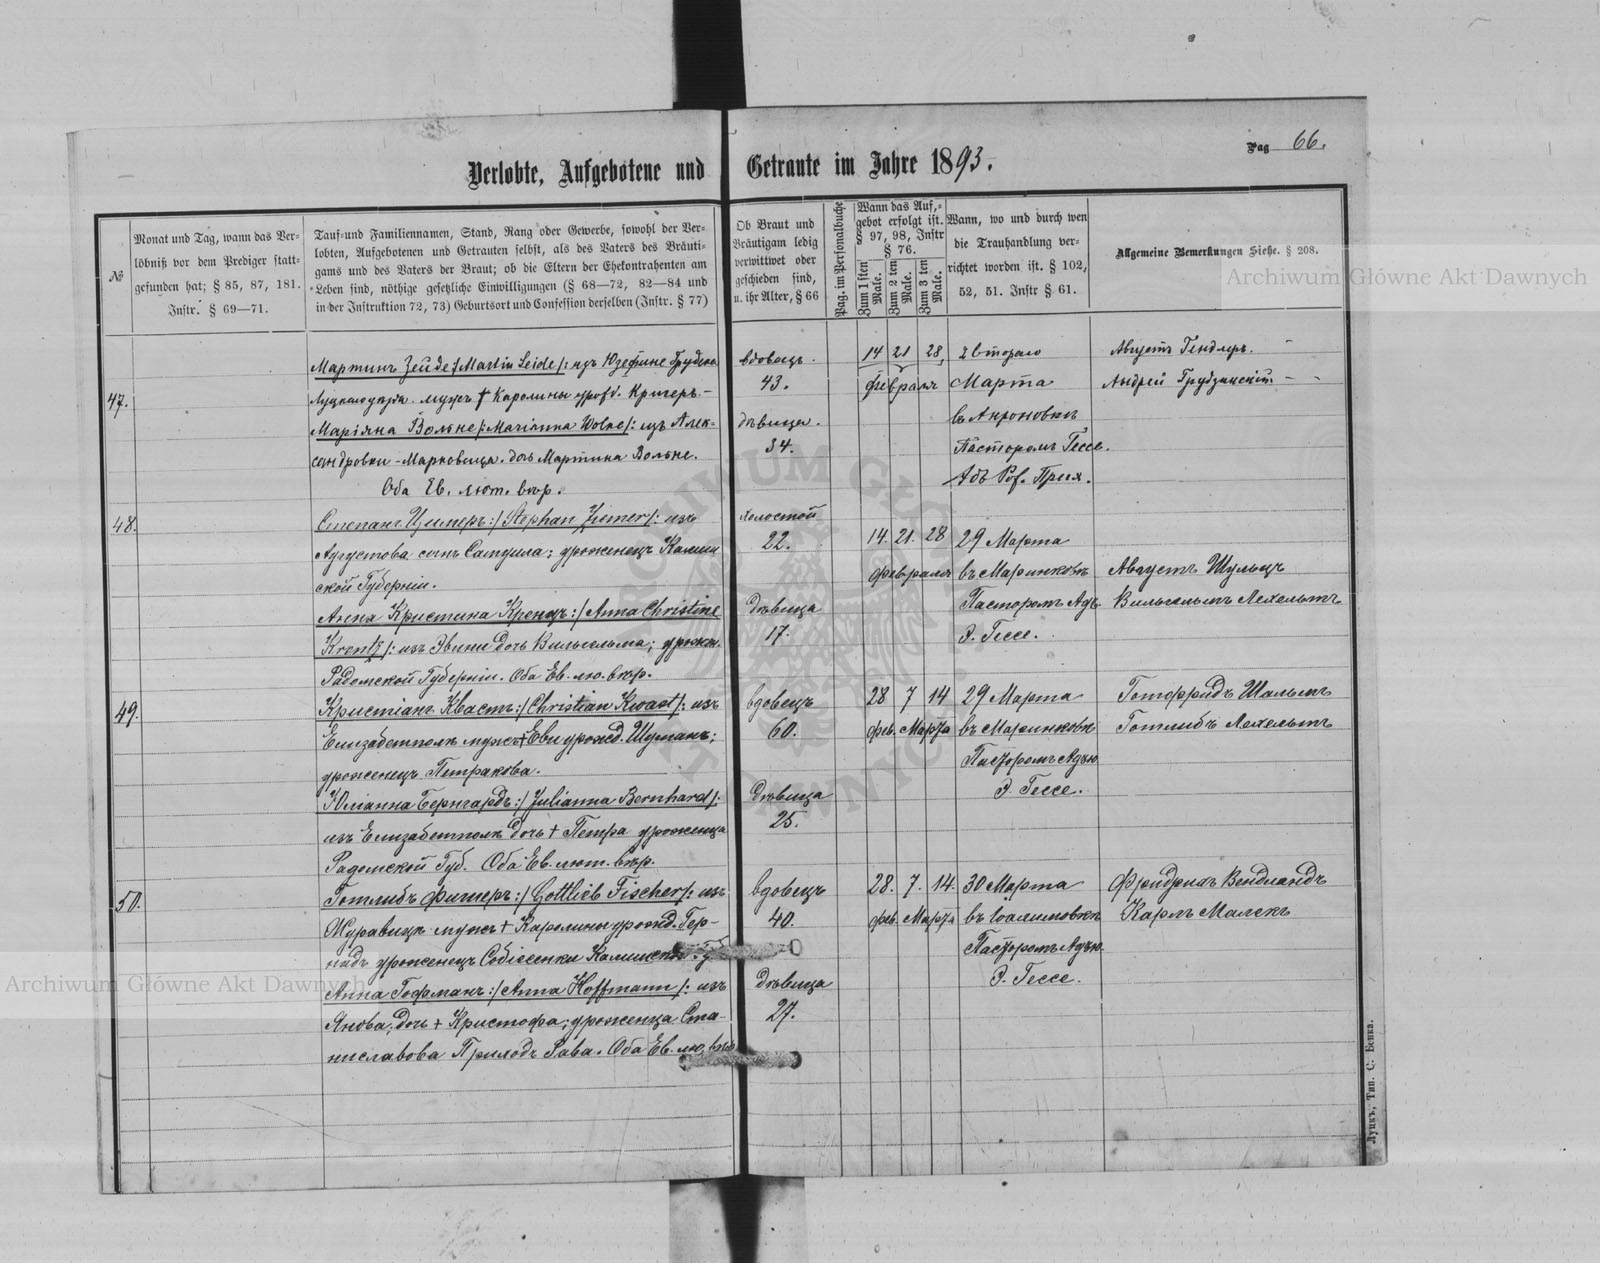 Pag 66.
Verlobte, Aufgebotene und Getraute im Jahre 1893.
№
Monat und Tag, wann das Ver-
löbniß vor dem Prediger statt-
gefunden hat; § 85, 87, 181.
Instr. § 69—71.
Tauf-und Familiennamen, Stand, Rang oder Gewerbe, sowohl der Ver-
lobten, Aufgebotenen und Getrauten selbst, als des Vaters des Bräuti-
gams und des Vaters der Braut; ob die Eltern der Ehekontrahenten am
Leben sind, nöthige gesetzliche Einwilligungen (§ 68—72, 82—84 und
in der Instruktion 72, 73) Geburtsort und Confession derselben (Instr. § 77)
Ob Braut und
Bräutigam ledig
verwittwet oder
geschieden sind,
u. ihr Alter, § 66
Pag. im Personalbuche
Wann das Auf-
gebot erfolgt ist.
§ 97, 98, Instr
§ 76.
Zum 1 sten Male.
Zum 2 ten Male.
Zum 3 ten Male.
Wann, wo und durch wen
die Trauhandlung ver-
richtet worden ist. § 102,
52, 51. Instr § 61.
Allgemeine Bemerkungen Siehe. § 208.
47.
Мартинъ Зейде /:Martin Seide/: изъ Юзефине
мужъ † Каролины урожд. Кригеръ.
Маріяна Вольне /:Marianna Wolne/: изъ Алек-
сандровки-Марковица. дочь Мартина Вольне.
Оба Ев. лют. вѣр.
вдовецъ.
43.
дѣвица.
34.
14 21 28,
февраля
2 Второго
Марта
въ Антоновкѣ
Пасторомъ Гессе.
Августъ Гендлеръ.
Андрей Грудзинскій
48.
Степанъ Цимеръ:/Stephan Ziemer/: изъ
Аугустова сынъ Самуила; уроженецъ Калиш
ской Губерніи.
Анна Кристина Кренцъ:/Anna Christine
Krentz/: изъ дочь Вильгельма; урожен.
Радомской Губерніи. Оба Ев. лю. вѣр.
холостой
22.
Дѣвица
17.
14. 21. 28
февраля
29 Марта
въ Маринковѣ
Пасторомъ Адъ.
Э. Гессе.
Августъ Шульцъ
Вильгельмъ Лехельтъ
49.
Кристіанъ Квастъ:/Christian Kwast/: изъ
Елизабетполь мужъ † Евы урожд. Шуманъ;
уроженецъ Петракова.
Юліанна Бернгардъ:/Julianna Bernhard/:
изъ Елизабетполя дочь † Петра уроженца
Радомской Губ. Оба Ев. лют. вѣр.
вдовецъ
60.
Дѣвица
25.
28 7 14
фев. Марта
29 Марта
въ Маринковѣ
Пасторомъ Адъю.
Э. Гессе.
Готфридъ Шальмъ
Готлибъ Лехельтъ
50.
Готлибъ Фишеръ:/Gottlieb Fischer/: изъ
Журавицъ мужъ † Каролины урожд. Гер-
уроженецъ Собіесенки Калишской
Анна Гофманъ:/Anna Hoffmann/: изъ
Янова; дочь † Кристофа; уроженца Ста-
ниславова Приходъ Рава. Оба Ев. лю. вѣр
вдовецъ
40.
Дѣвица
27.
28. 7. 14.
фев. Марта
30 Марта
въ
Пасторомъ Адъю.
Э. Гессе.
Фридрихъ Вендландъ
Карлъ Малекъ
Луцкъ, Тип. С. Бенка.
Archiwum Główne Akt Dawnych
Archiwum Główne Akt Dawnych